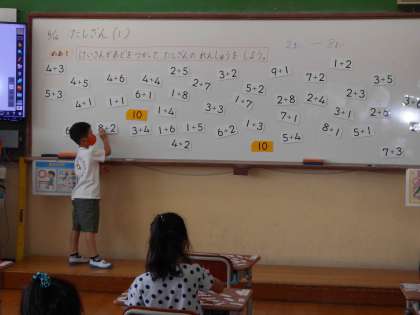 たしざん(1)
めあて けいさんカードをつかって たしざんの れんしゅうを しよう。
4+3 2+5 3+2 9+1 1+2
4+5 4+6 4+4 2+7 7+2 3+5
5+3 6+1 1+8 5+2
4+1 1+1 1+7 2+8 2+4 2+3
10 1+4 3+3 7+1 3+1 2+6
8+2 3+4 1+6 1+5 6+2 1+3 8+1 5+1
5+4
4+2 10
7+3